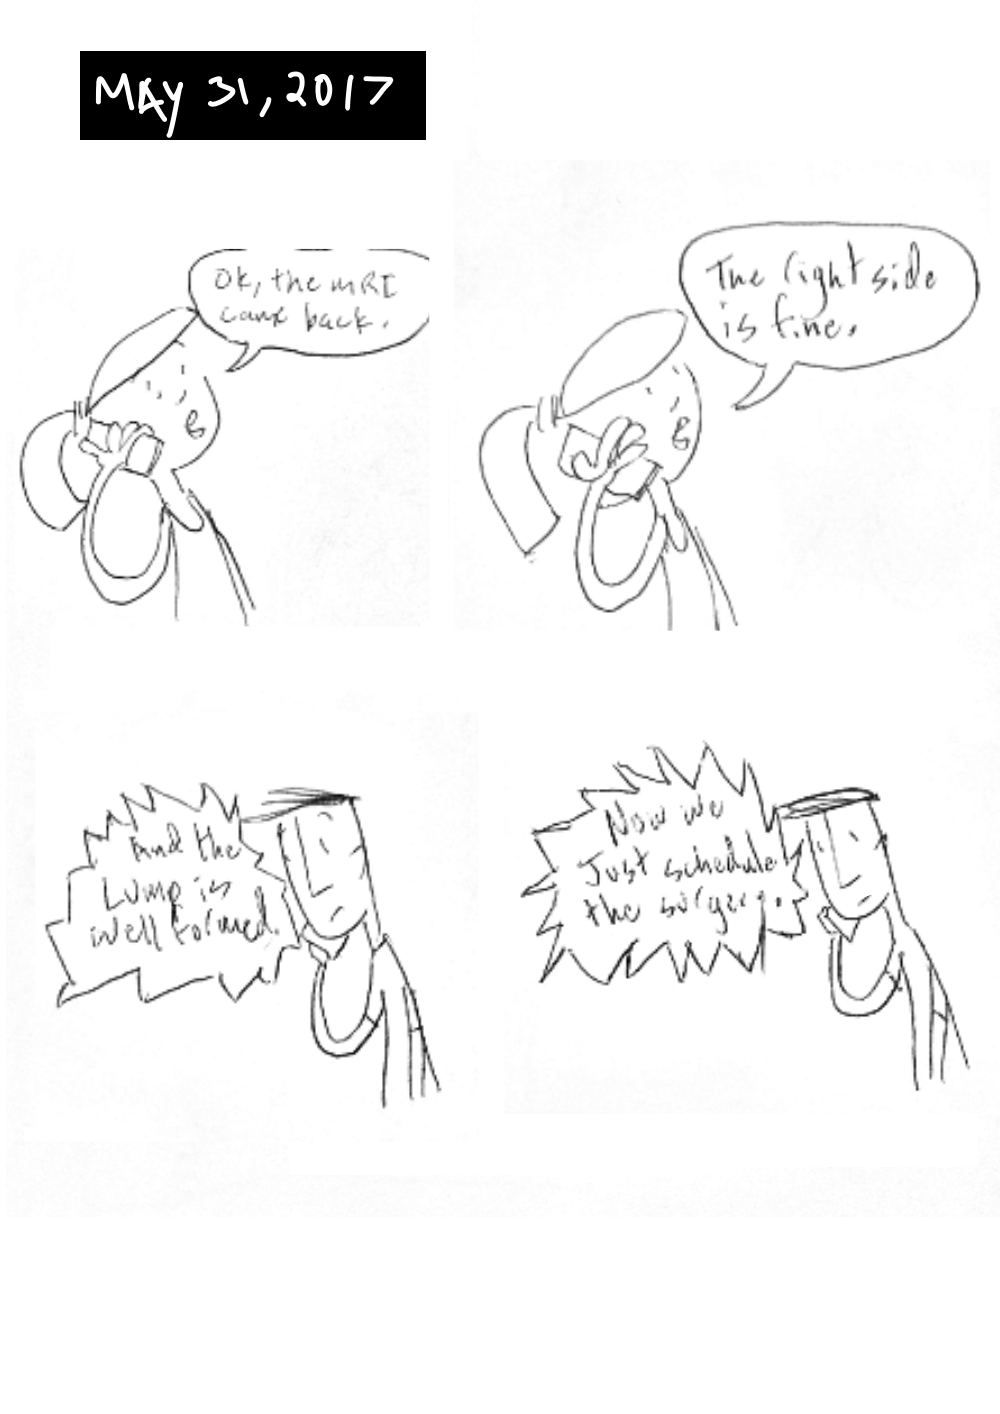 MAY 31, 2017
Ok, the MRI
came back.
The right side
is fine.
And the
Lump is
well formed.
Now we
Just schedule
the surgery.